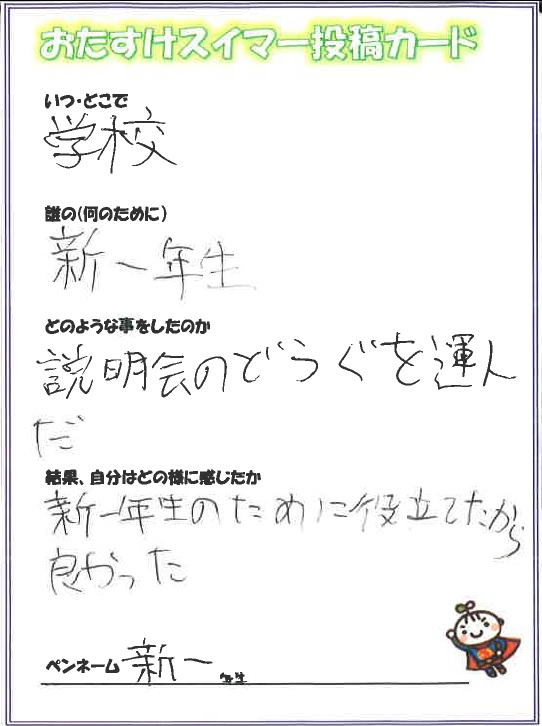 おたすけスイマー投稿カード
いつ・どこで
学校
誰の(何のために)
新一年生
どのような事をしたのか
説明会のどうぐを運ん
だ
結果、自分はどの様に感じたか
新一年生のために役立てたから
良かった
ペンネーム 新一年生